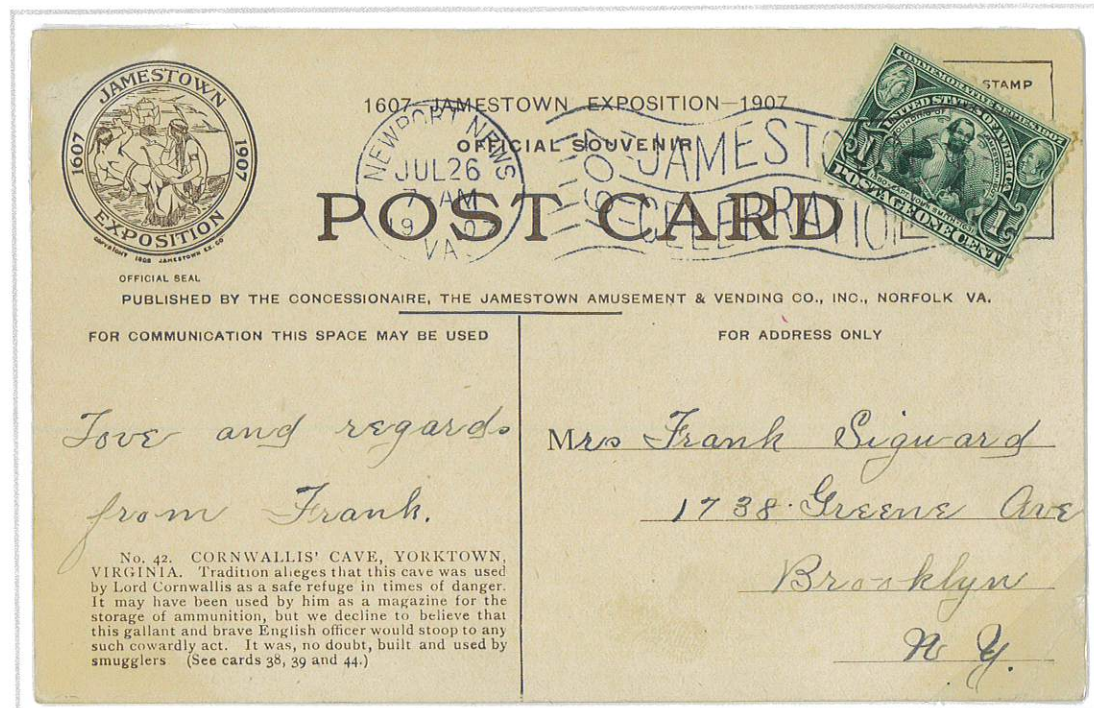 JAMESTOWN
1607 1907
EXPOSITION
COPYRIGHT 1906 JAMESTOWN EX. CO
OFFICIAL SEAL
1607 JAMESTOWN EXPOSITION—1907
OFFICIAL SOUVENIR
POST CARD
NEWPORT NEWS
JUL 26
7 AM
VA.
JAMESTO
CELEBRATION
STAMP
COMMEMORATIVE SERIES 1907
UNITED STATES OF AMERICA
FOUNDING OF JAMESTOWN
CAPTAIN JOHN SMITH
1 1
POSTAGE ONE CENT
PUBLISHED BY THE CONCESSIONAIRE, THE JAMESTOWN AMUSEMENT & VENDING CO., INC., NORFOLK VA.
FOR COMMUNICATION THIS SPACE MAY BE USED
Love and regards
from Frank.
No. 42. CORNWALLIS' CAVE, YORKTOWN,
VIRGINIA. Tradition alleges that this cave was used
by Lord Cornwallis as a safe refuge in times of danger.
It may have been used by him as a magazine for the
storage of ammunition, but we decline to believe that
this gallant and brave English officer would stoop to any
such cowardly act. It was, no doubt, built and used by
smugglers (See cards 38, 39 and 44.)
FOR ADDRESS ONLY
Mrs Frank Sigward
1738 Greene Ave
Brooklyn
N Y.